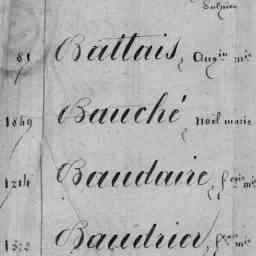 Sulpice
81 Battais, Aug.in m.ie
1849 Bauché, Noël marie
1214 Baudaire, f.çois m.ie
1322 Baudrier, f.çois m.ie